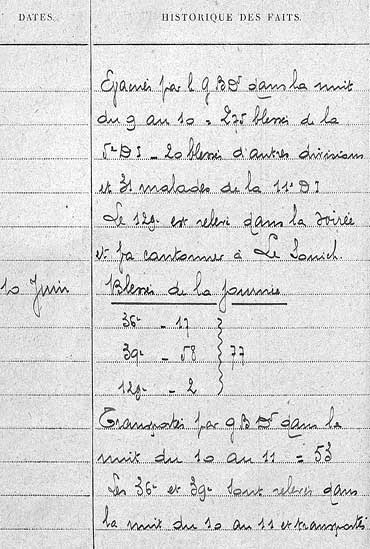 DATES.
HISTORIQUE DES FAITS.
Évacués par l g BD dans la nuit
du 9 au 10 = 275 blessés de la
5e DI _ 20 blessés d'autres divisions
et 31 malades de la 11e DI
Le 129e est relevé dans la soirée
et va cantonner à Le
10 Juin
Blessés de la journée
36e _ 17
39e _ 58
77
129e _ 2
Transportés par g BD dans la
nuit du 10 au 11 = 53
Les 36e et 39e sont relevés dans
la nuit du 10 au 11 et transportés